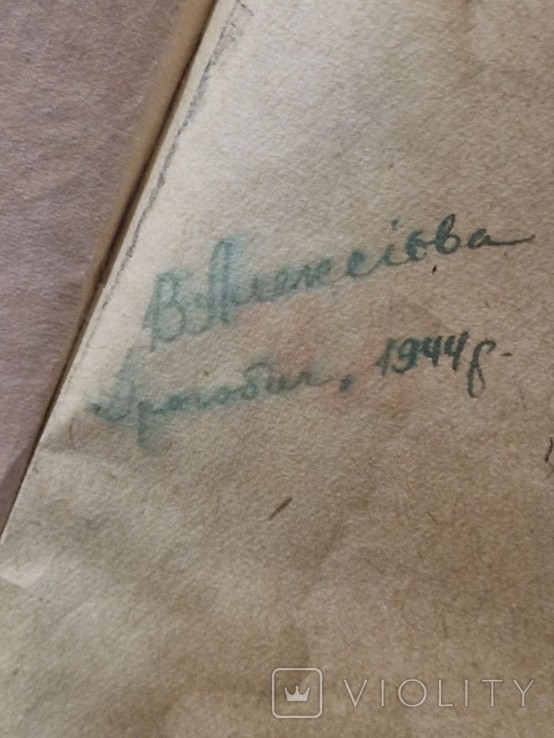 В. Алексієва
Дрогобич, 1944 р.
VIOLITY